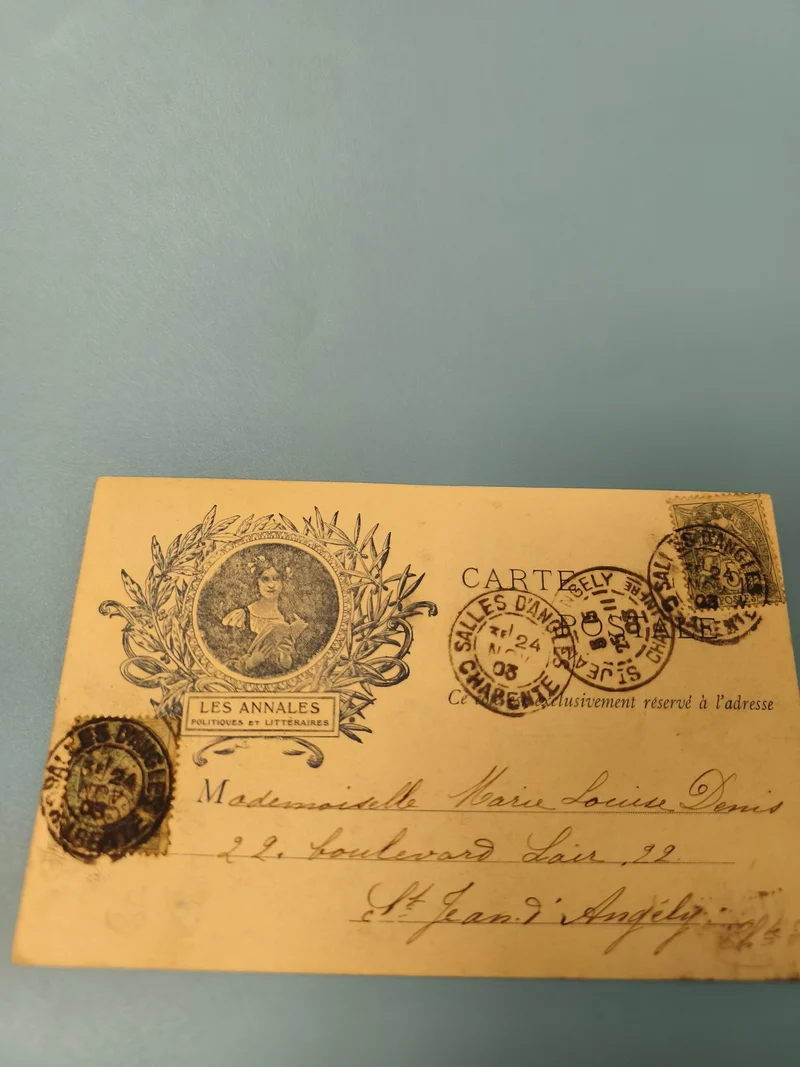 CARTE POSTALE
Ce côté est exclusivement réservé à l'adresse
LES ANNALES
POLITIQUES ET LITTÉRAIRES
SALLES D'ANGLES
24
NOV
03
CHARENTE
ST JEAN D'ANGELY
SALLES D'ANGLES
24
03
CHARENTE
SALLES D'ANGLES
24
NOV
03
CHARENTE
Mademoiselle Marie Louise Denis
22. boulevard Lair, 22.
St Jean d'Angély